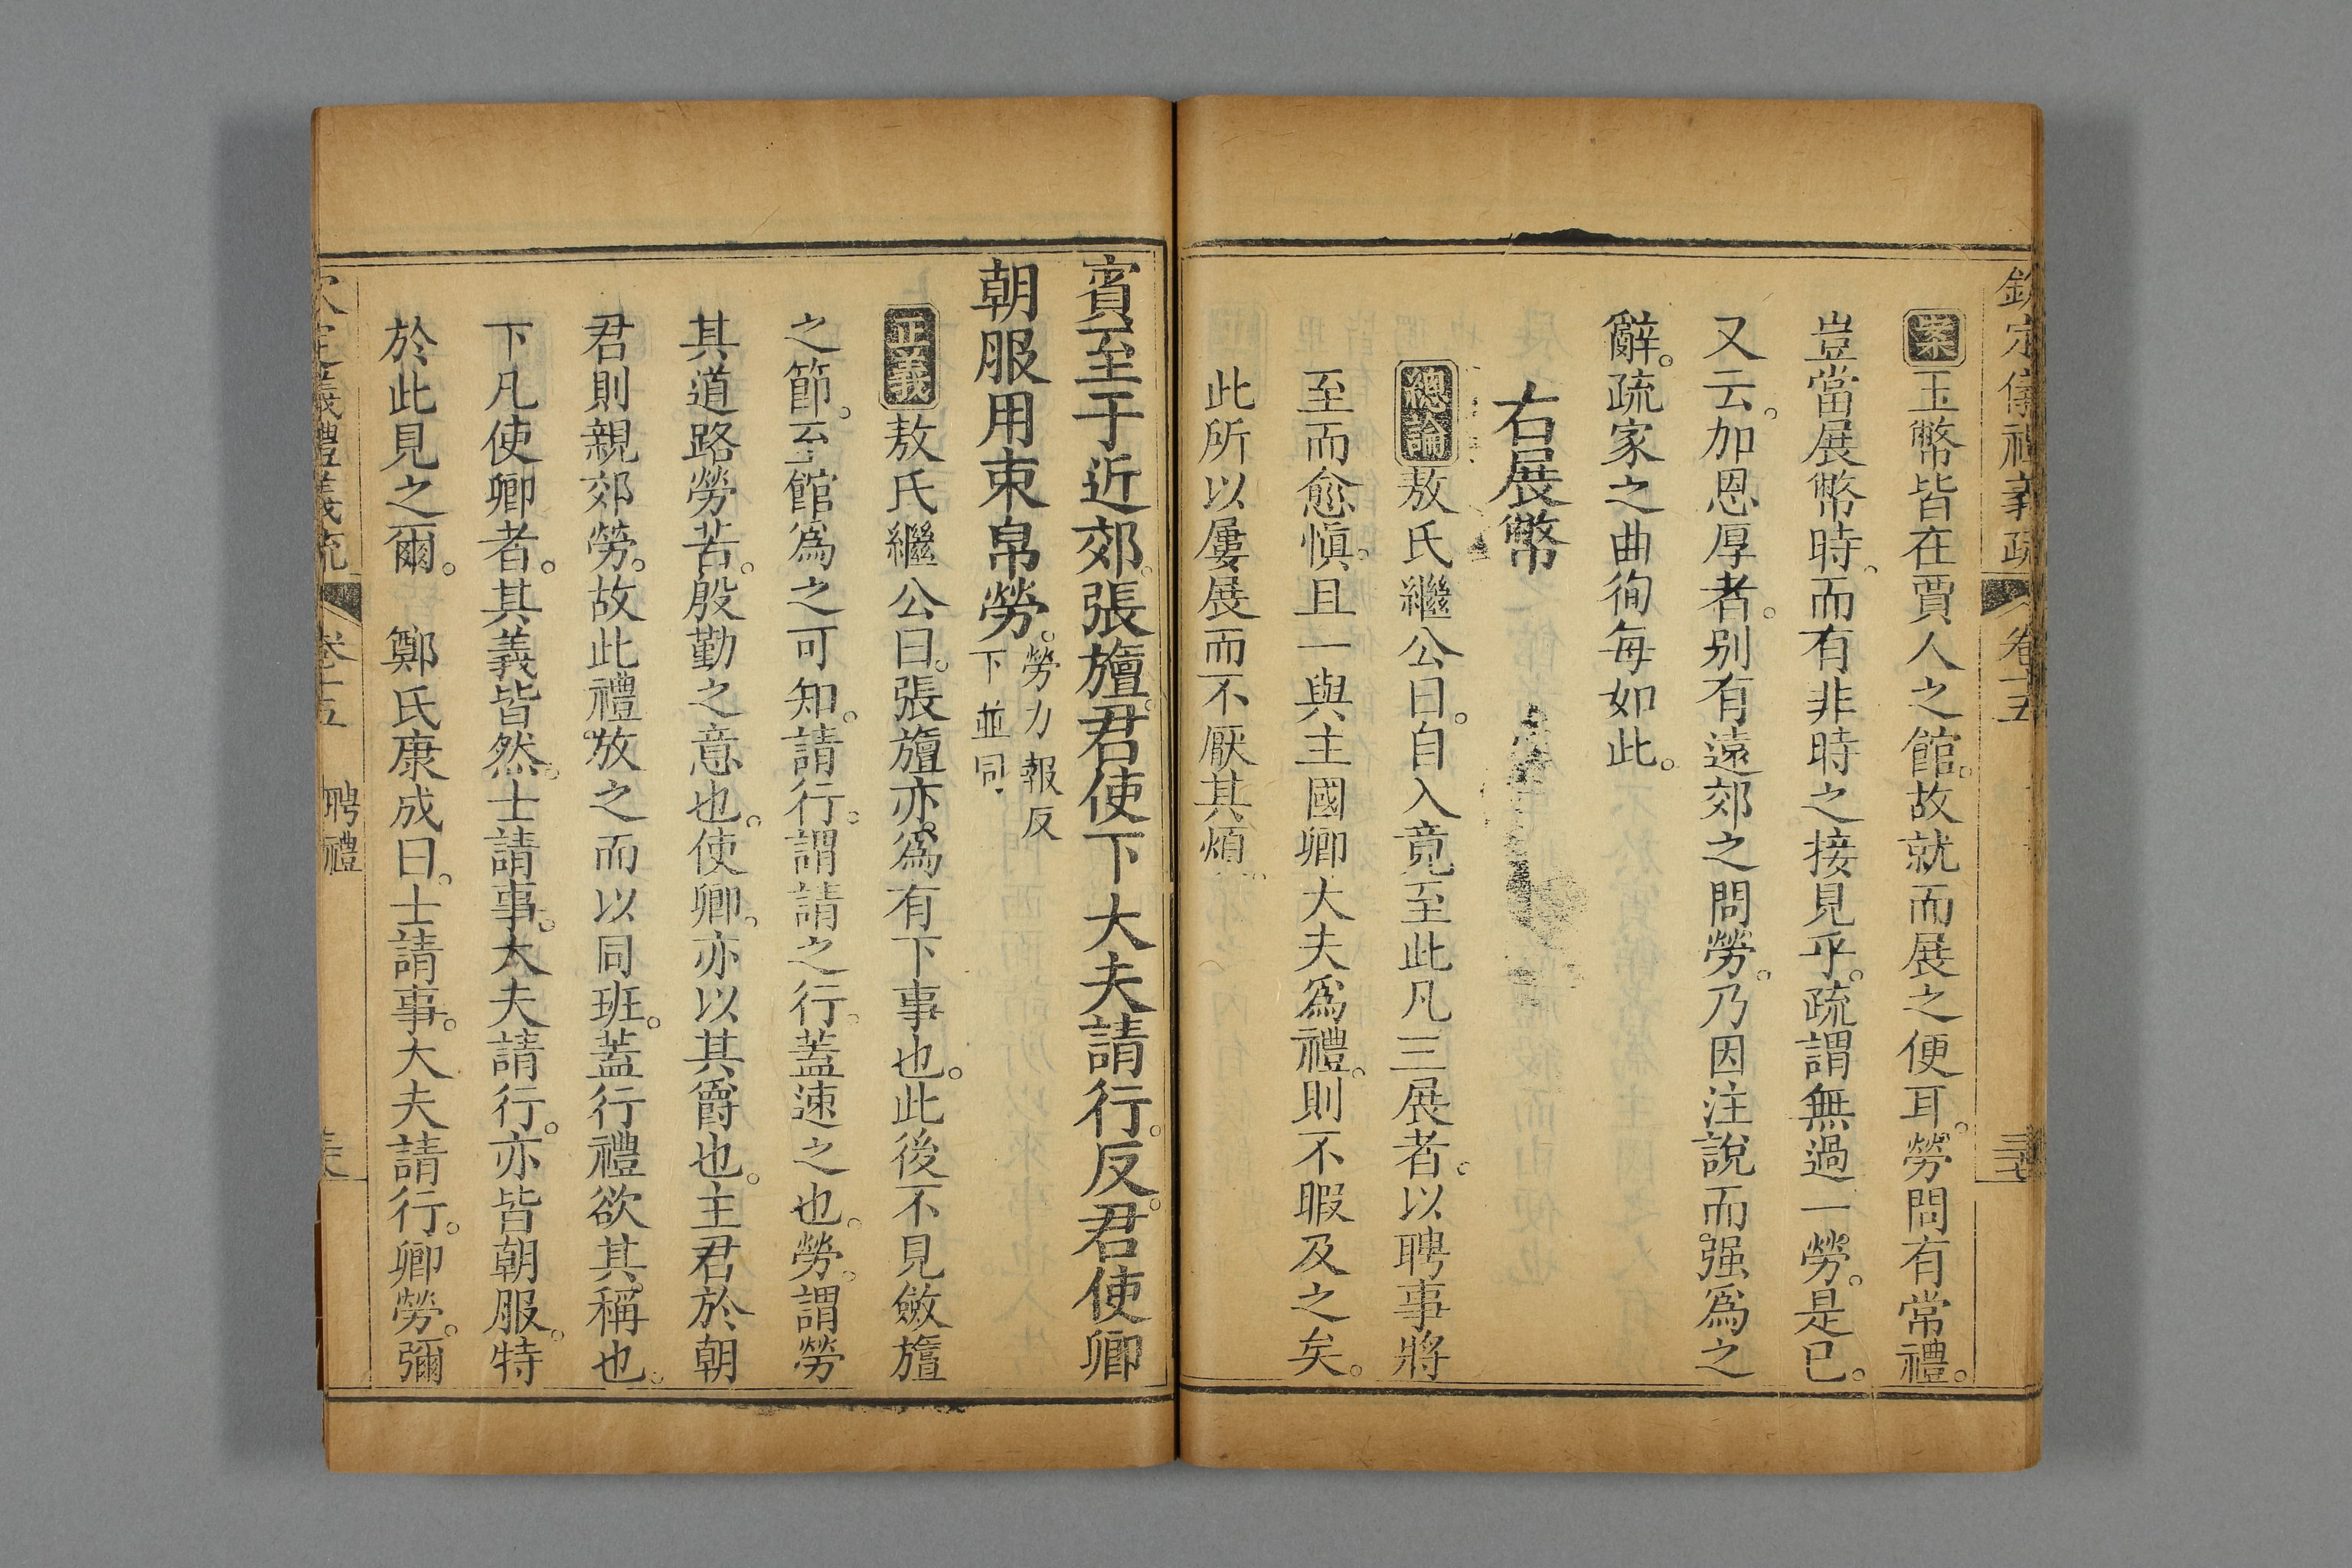 欽定儀禮義疏 卷十五
案玉幣皆在賈人之館。故就而展之便耳。勞問有常禮。
豈當展幣時、而有非時之接見乎。疏謂無過一勞。是已。
又云。加恩厚者。别有遠郊之問勞。乃因注說而强爲之
辭。疏家之曲徇每如此。
右展幣
總論敖氏繼公曰。自入竟至此凡三展者。以聘事將
至而愈慎。且一與主國卿大夫爲禮。則不暇及之矣。
此所以屢展而不厭其煩
賓至于近郊。張旜。君使下大夫請行。反。君使卿
朝服用束帛勞。勞力報反
下並同
正義敖氏繼公曰。張旜亦爲有下事也。此後不見斂旜
之節。云至館爲之可知。請行。謂請之行。蓋速之也。勞。謂勞
其道路勞苦。殷勤之意也。使卿。亦以其爵也。主君於朝
君則親郊勞。故此禮放之而以同班。蓋行禮欲其稱也。
下凡使卿者。其義皆然。士請事。大夫請行。亦皆朝服。特
於此見之爾。 鄭氏康成曰。士請事。大夫請行。卿勞。彌
欽定儀禮義疏 卷十五 聘禮